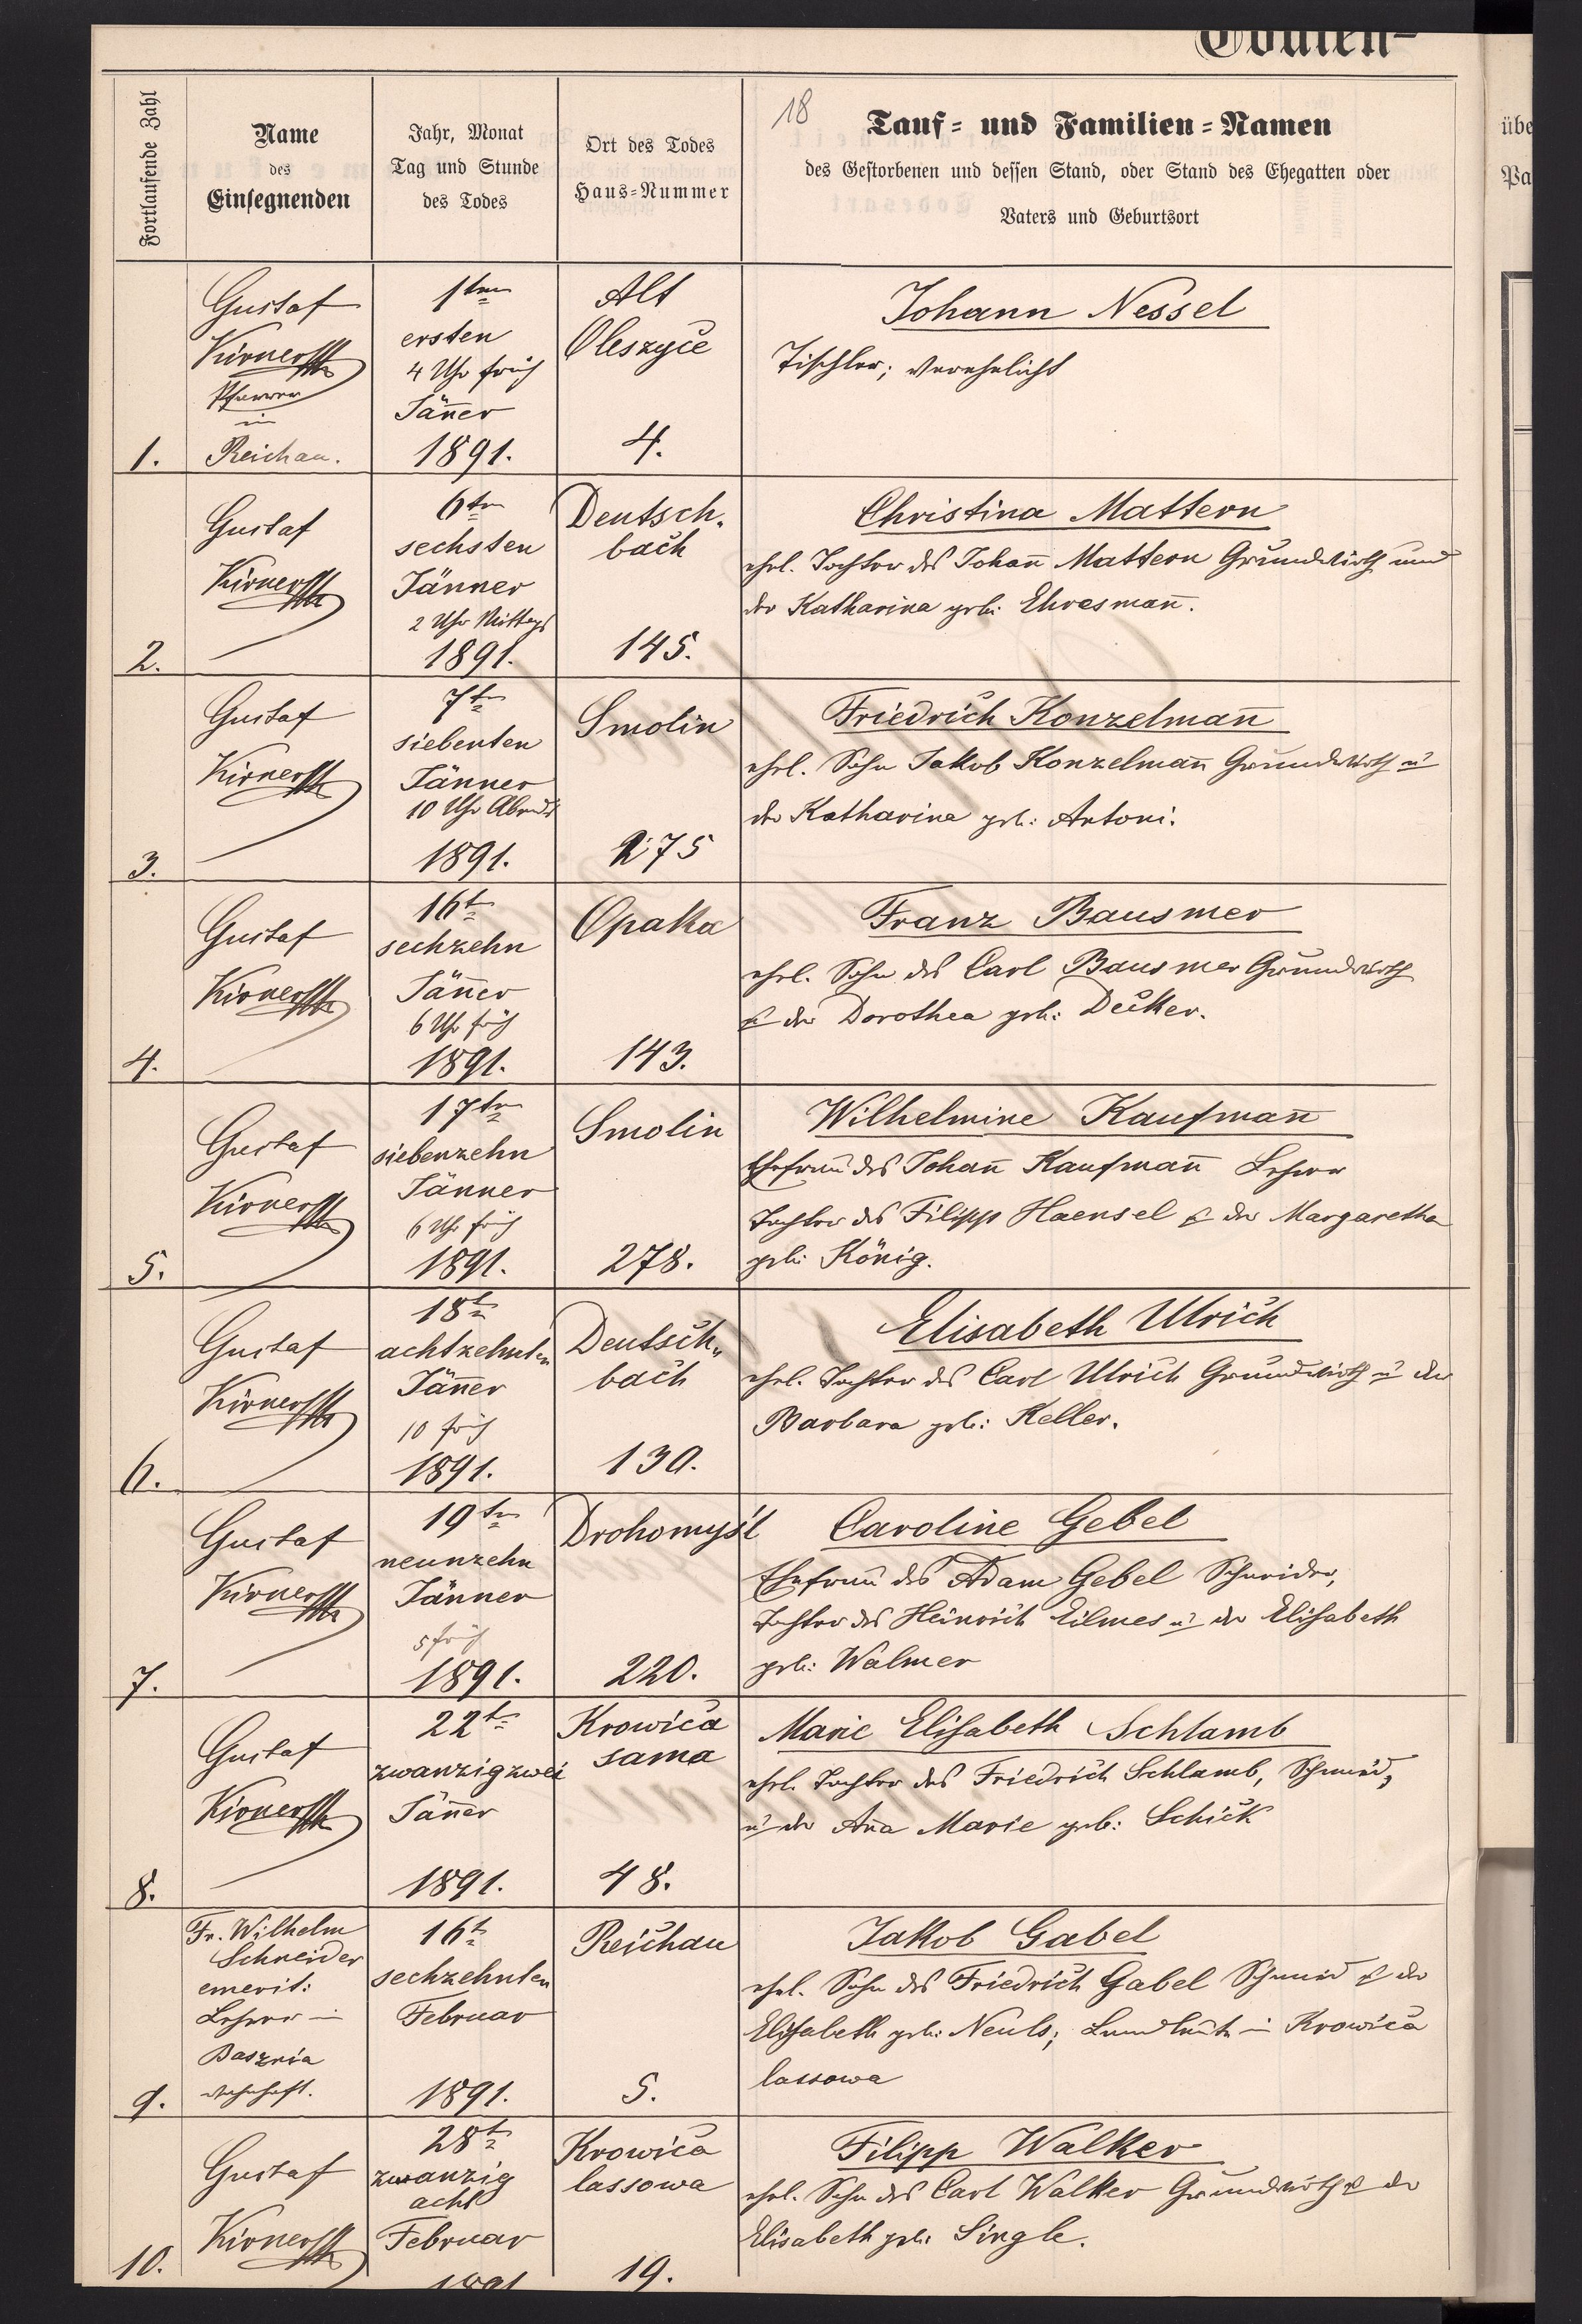 Todten-
Fortlaufende Zahl
Name
des
Einsegnenden
Jahr, Monat
Tag und Stunde
des Todes
Ort des Todes
Haus-Nummer
18
Tauf- und Familien-Namen
des Gestorbenen und dessen Stand, oder Stand des Ehegatten oder
Vaters und Geburtsort
übe
Pa
1.
Gustaf
Kirner
Pfarrer
in
Reichau.
1ten
ersten
4 Uhr früh
Jän̄er
1891.
Alt
Oleszyce
4.
Johann Nessel
Tischler; verehelicht
2.
Gustaf
Kirner
6ten
sechsten
Jänner
2 Uhr Mittags
1891.
Deutsch-
bach
145.
Christina Mattern
ehel. Tochter des Johan̄ Mattern Grundwirth und
der Katharina geb: Ehresman̄.
3.
Gustaf
Kirner
7ten
siebenten
Jänner
10 Uhr Abends
1891.
Smolin
275
Friedrich Konzelman̄
ehel. Sohn Jakob Konzelman̄ Grundwirth u
der Katharina geb: Antoni.
4.
Gustaf
Kirner
16t
sechzehn
Jän̄er
6 Uhr früh
1891.
Opaka
143.
Franz Bausmer
ehel. Sohn des Carl Bausmer Grundwirth
& der Dorothea geb: Decker.
5.
Gustaf
Kirner
17ten
siebenzehn
Jänner
6 Uhr früh
1891.
Smolin
278.
Wilhelmine Kaufman̄
Ehefrau des Johan̄ Kaufman̄ Lehrer
Tochter des Filipp Haensel & der Margaretha
geb: König.
6.
Gustaf
Kirner
18t
achtzehnten
Jän̄er
10 früh
1891.
Deutsch-
bach
130.
Elisabeth Ulrich
ehel. Tochter des Carl Ulrich Grundwirth u der
Barbara geb: Keller.
7.
Gustaf
Kirner
19ten
neunzehn
Jänner
5 früh
1891.
Drohomyśl
220.
Caroline Gebel
Ehefrau des Adam Gebel Schneider,
Tochter des Heinrich Eilmes u der Elisabeth
geb: Walmer
8.
Gustaf
Kirner
22t
zwanzigzwei
Jän̄er
1891.
Krowica
sama
48.
Marie Elisabeth Schlamb
ehel. Tochter des Friedrich Schlamb, Schmied,
u der An̄a Marie geb: Schick
9.
Fr. Wilhelm
Schneider
emerit:
Lehrer in
Basznia
wohnhaft.
16t
sechzehnten
Februar
1891.
Reichau
5.
Jakob Gabel
ehel. Sohn des Friedrich Gabel Schmied & der
Elisabeth geb: Neuls; Landleute in Krowica
lassowa
10.
Gustaf
Kirner
28t
zwanzig
acht
Februar
1891
Krowica
lassowa
19.
Filipp Walker
ehel. Sohn des Carl Walker Grundwirth & der
Elisabeth geb: Single.